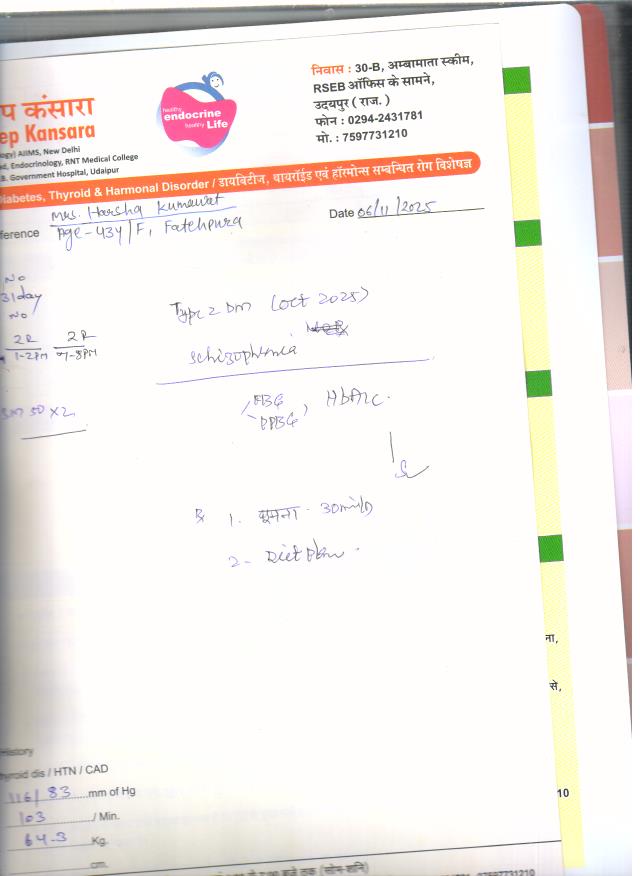 प कंसारा
ep Kansara
ogy) AIIMS, New Delhi
d, Endocrinology, RNT Medical College
B. Government Hospital, Udaipur
healthy
endocrine
healthy Life
निवास : 30-B, अम्बामाता स्कीम,
RSEB ऑफिस के सामने,
उदयपुर ( राज. )
फोन : 0294-2431781
मो. : 7597731210
Diabetes, Thyroid & Harmonal Disorder / डायबिटीज, थायरॉईड एवं हॉरमोन्स सम्बन्धित रोग विशेषज्ञ
Mrs. Harsha Kumawat
ference Age - 43Y/F, Fatehpura
Date 06/11/2025
No
31day
No
2R 2R
1-2PM 7-8PM
50 x 2
Type 2 DM (Oct 2025)
Schizophrenia
FBG
PPBG , HbA1c.
Rx 1. घूमना - 30min/D
2- Diet Plan.
ना,
से,
History
hyroid dis / HTN / CAD
116/83 mm of Hg
103 / Min.
64.3 Kg.
cm.
10
7:00 बजे तक (सोम-शनि)
7597731210